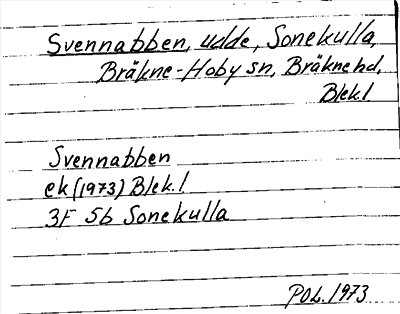 Svennabben, udde, Sonekulla,
Bräkne-Hoby sn, Bräkne hd,
Blek.l
Svennabben
ek (1973) Blek.l
3F 5b Sonekulla
POL. 1973